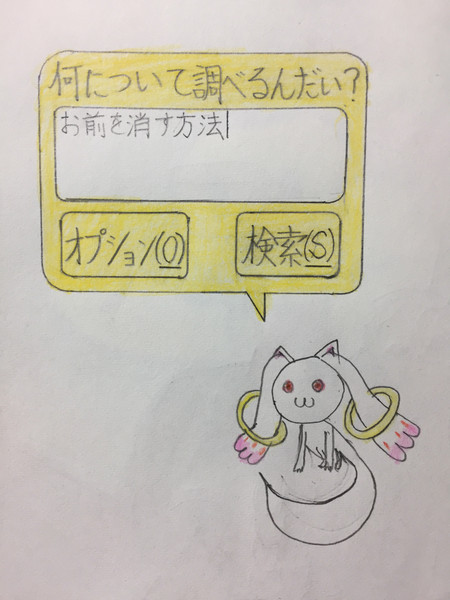 何について調べるんだい?
お前を消す方法
オプション(O)
検索(S)